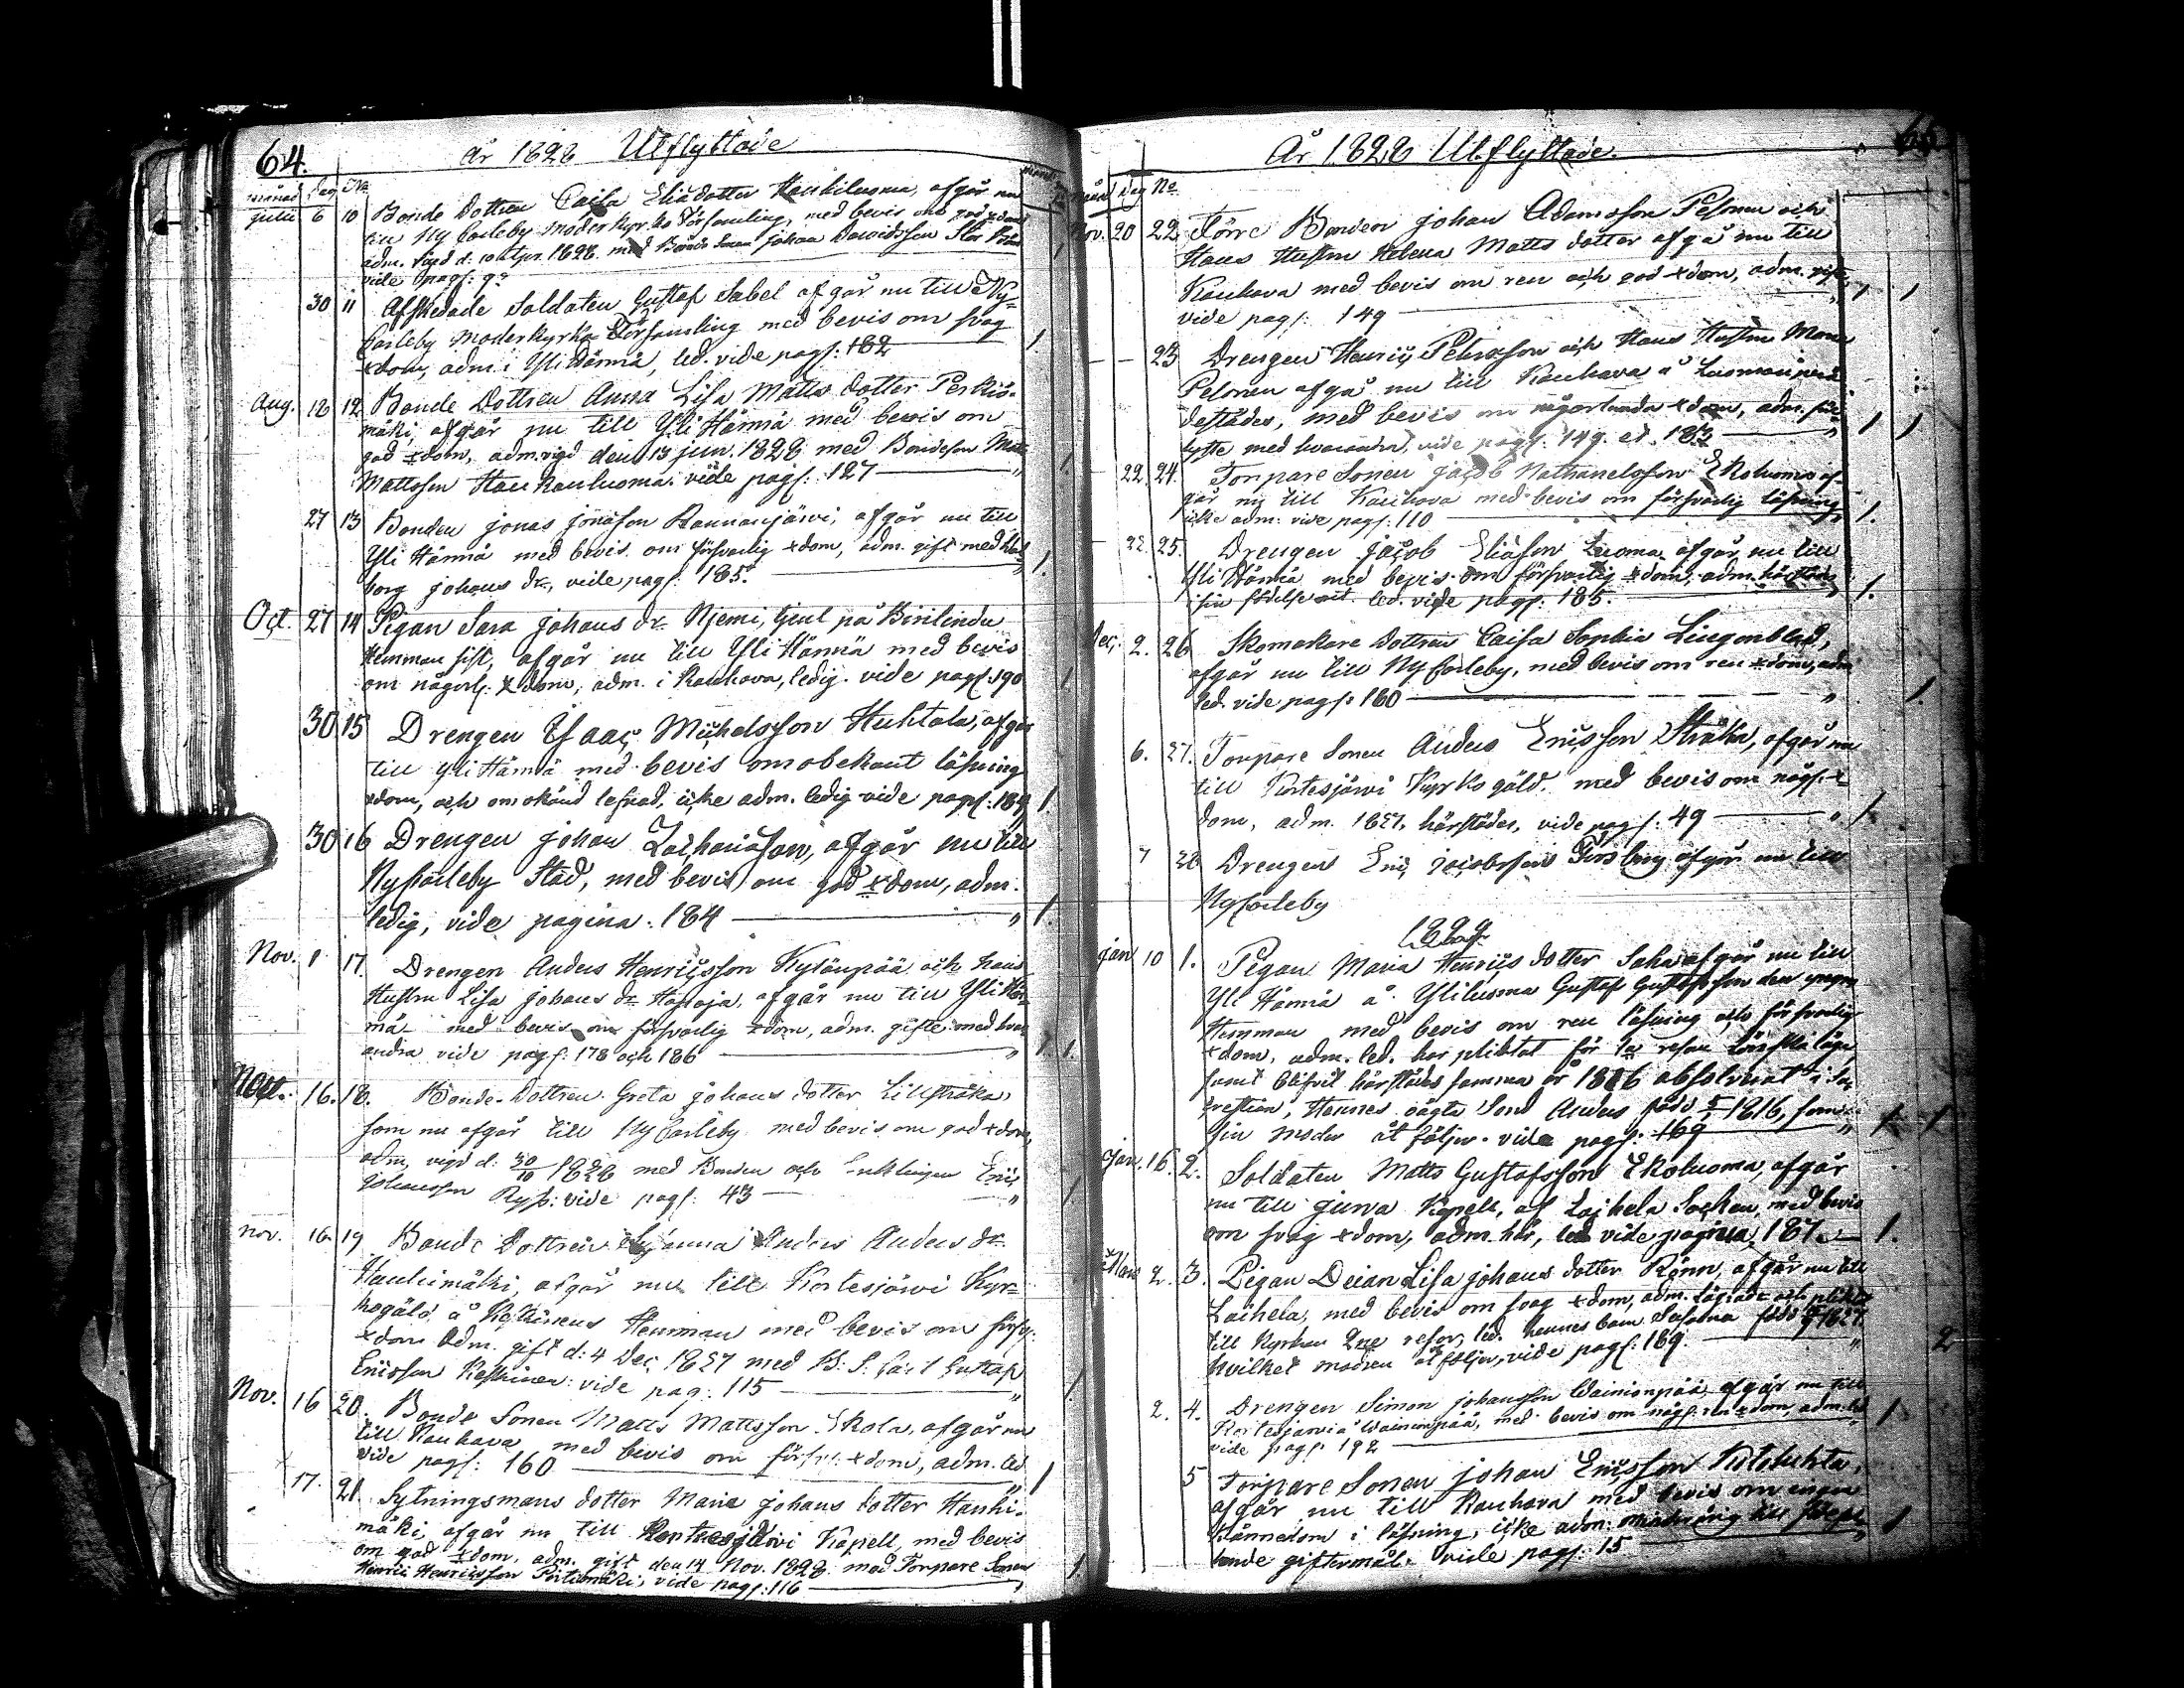 64.
År 1828 Utflyttade
månad Dag No
julii 6 10 Bonde Dottren Caisa Eliæ dotter Kaukiluoma, afgår nu
till Ny Carleby Moderkyrko Församling, med bevis om god xdom
adm. vigd d. 10 1828. med Bonde Sonen Johan Davidsson Stor
vide pag: 92
30 11 Afskedade Soldaten Gustaf Sabel afgår nu till Ny
Carleby Moderkyrko Församling med bevis om svag
xdom, adm. i Yli Härmä, led. vide pag: 182 1.
Aug. 18 12 Bonde Dottren Anna Lisa Matts dotter Perkiö-
mäki, afgår nu till Yli Härmä med bewis om
god xdom, adm. vigd den 13 jun. 1828 med Bondeson Matts
Mattsson Haukanluoma. vide pag: 127 " 1.
27 13 Bonden jonas jonasson Rannanjärvi, afgår nu till
Yli Härmä med bevis om försvarlig xdom, adm. gift med Wal
borg johans dr., vide pag: 185. " 1.
Oct. 27 14 Pigan Sara johans dr. Njemi, tjent på Kivilindu
Hemman sist, afgår nu till Yli Härmä med bevis
om någorl: xdom, adm. i Kauhava, ledig. vide pag: 190 1
30 15 Drengen Isaac Michelsson Huhtala, afgår
till Yli Härmä med bevis om obekant läsning
xdom, och om okänd lefnad, icke adm. ledig vide pag: 189 1.
30 16 Drengen johan Zachariæson, afgår nu till
Nycarleby Stad, med bevis om god xdom, adm.
ledig, vide pagina: 184 " 1.
Nov. 8 17 Drengen Anders Henricsson Kylänpää och hans
Hustru Lisa johans dr. Harroja, afgår nu till Yli Här-
mä med bevis om försvarlig xdom, adm. gifte med hvar
andra vide pag: 178 och 186 " 1. 1.
Nov. 16. 18. Bonde Dottren Greta johans dotter Lillstråka,
som nu afgår till Ny Carleby med bevis om god xdom,
adm, vigd d: 30/10 1828 med Bonden och Enklingen Eric
Johansson Ryss: vide pag: 43 " 1
nov. 16. 19 Bonde Dottren Susanna Anders Anders dr.
Hauhimäki, afgår nu till Kortesjärvi Kyr-
kogäld, å Keskinens Hemman med bevis om försv:
xdom Adm. gift d: 4 Dec. 1827 med B: S: Carl Gustaf
Ericsson Keskinen: vide pag: 115 " 1
Nov. 16 20. Bonde Sonen Matts Mattsson Ekola, afgår nu
till Kauhava med bevis om försv: xdom, adm. led
vide pag: 160 " 1
17. 21 Sytningsmans dotter Maria johans dotter Hauhi-
mäki, afgår nu till Kortesjärvi Kapell, med bevis
om god xdom, adm. gift den 14 Nov. 1828. med Torpare Sonen
Henric Henricsson Porttimäki, vide pag: 116 1
År 1828 Utflyttade.
månd Dag No
Nov. 20 22. Förre Bonden johan Adamsson Pelonen och
Hans Hustru Helena Matts dotter afgå nu till
Kauhava med bevis om ren och god xdom, adm. gifte,
vide pag: 149 " 1 1
— — 23 Drengen Henric Petersson och Hans Hustru Maria
Pelonen afgå nu till Kauhava å Luomanperä
destädes, med bevis om någorlunda xdom, adm.
gifte med hvarandra, vide pag: 149. et. 183 " 1 1
22. 24. Torpare Sonen jacob Nathanelsson Ekoluoma af-
går nu till Kauhava med bevis om försvarlig läsning,
icke adm: vide pag: 110 1.
22. 25. Drengen jacob Eliæson Luoma afgår nu till
Yli Härmä med bevis om försvarlig xdom, adm. härstädes
i sin födelse ort. led. vide pag: 185. 1.
Dec. 2. 26 Skomakare Dottren Caisa Sophia Lingonblad,
afgår nu till Ny Carleby, med bevis om ren xdom, adm
led. vide pag: 160 " 1.
6. 27. Torpare Sonen Anders Ericsson Stråka, afgår nu
till Kortesjärvi Kyrkogäld, med bevis om någ: x-
dom, adm. 1827. härstädes, vide pag: 49 " 1.
7 28 Drengen Eric jacobsson Forsberg afgår nu till
Nycarleby
1829
jan 10 1. Pigan Maria Henrics dotter Saha afgår nu till
Yli Härmä å Ylilusma Gustaf Gustafsson den yngre
Hemman med bevis om ren läsning och försvarlig
xdom, adm. led. har pliktat för 1a resan Lönskaläge
samt blifvit härstädes samma år 1816 absolverat i Sa-
cristian, Hennes oägta Sond Anders född 1816, som
sin moder åt följer. vide pag: 169 " 1 1
Jan. 16. 2. Soldaten Matts Gustafsson Ekoluoma, afgår
nu till jurva Kapell, af Laihela Socken, med bevis
om svag xdom, adm. här, led vide pagina, 187. 1.
Mars 2. 3. Pigan Deian Lisa johans dotter Rönn, afgår nu till
Laihela, med bevis om svag xdom, adm. och
till Kyrkan 2ne resor, led. hennes barn Susanna född 1827
hvilket modren åtföljer, vide pag: 189. " 2
2. 4. Drengen Simon johansson Wainionpää, afgår nu till
Kortesjärvi å Wainionpää, med bevis om någ: ren xdom, adm. led
vide pag: 192 " 1
5 Torpare Sonen johan Ericsson Kotshuhta,
afgår nu till Kauhava med bevis om ringa
Kännedom i läsning, icke adm:
giftermål. vide pag: 15 " 1